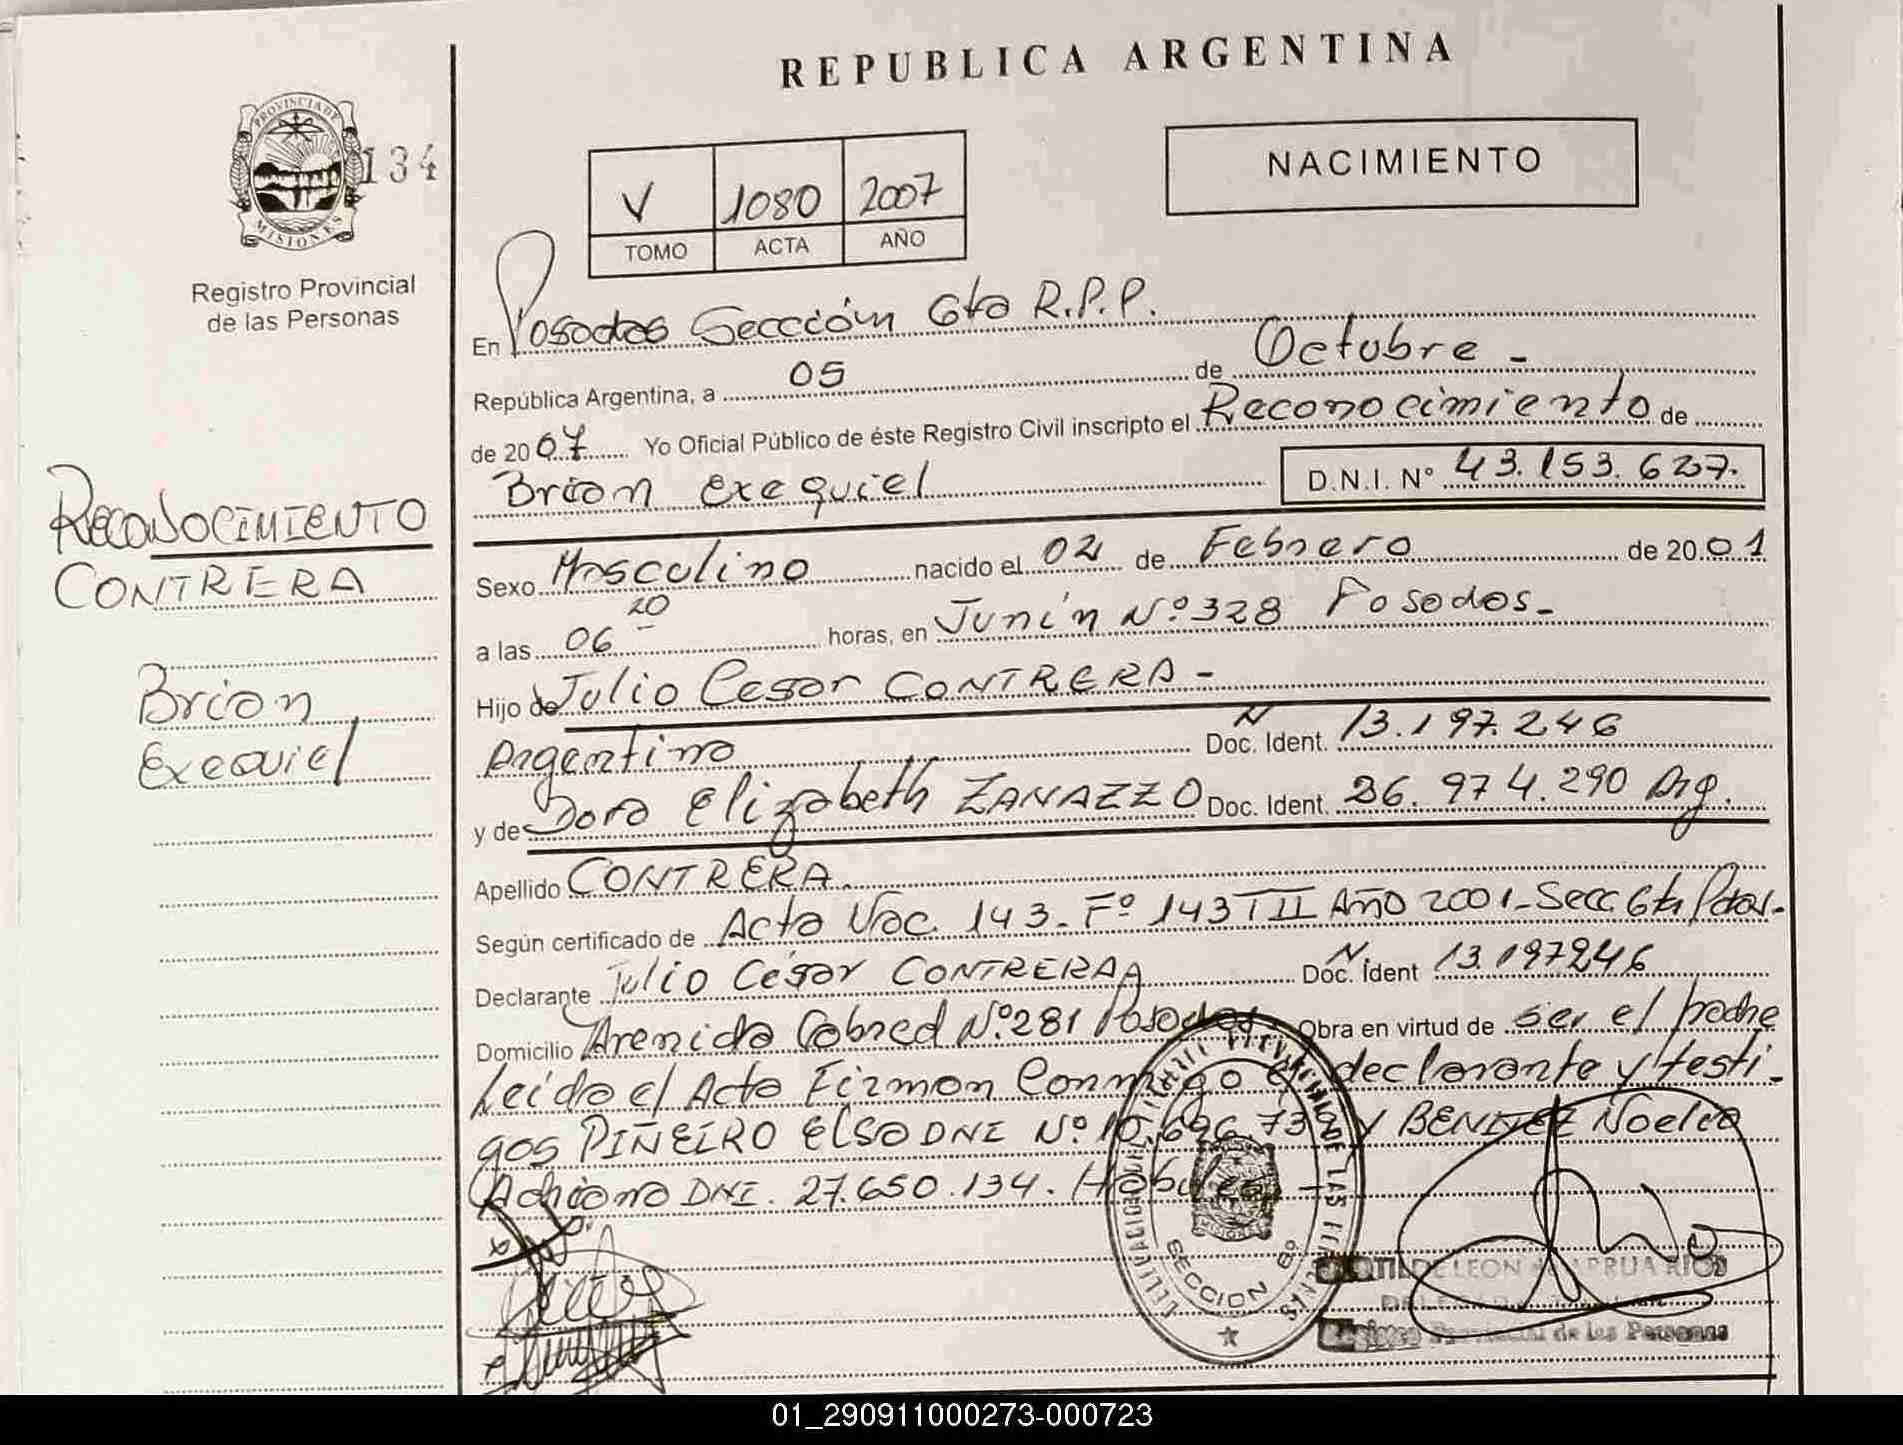 REPUBLICA ARGENTINA
PROVINCIA DE
MISIONES
134
Registro Provincial
de las Personas
V 1080 2007
TOMO ACTA AÑO
NACIMIENTO
En Posadas Sección 6ta R.P.P.
República Argentina, a 05 de Octubre -
de 2007 Yo Oficial Público de éste Registro Civil inscripto el Reconocimiento de
Brian Exequiel D.N.I. N° 43.153.627.
RECONOCIMIENTO
CONTRERA
Brian
Exequiel
Sexo Masculino nacido el 02 de Febrero de 2001
a las 06 20 horas, en Junín Nº 328 Posadas-
Hijo de Julio Cesar CONTRERA -
Argentino Doc. Ident. N 13.197.246
y de Dora Elizabeth ZANAZZO Doc. Ident. 26.974.290 Arg.
Apellido CONTRERA.
Según certificado de Acta Nac. 143. Fº 143 TII Año 2001- Secc. 6ta Pdas.-
Declarante Julio César CONTRERA Doc. Ident N 13.197246
Domicilio Avenida Cabred Nº 281 Posadas Obra en virtud de ser el padre
Leída el Acta Firman Conmigo el declarante y testi-
gos PIÑEIRO Elsa DNI Nº 10.696.73 y BENITEZ Noelia
Adriana DNI. 27.650.134. Hábiles.-
SECCION
DE LAS
Registro Provincial de las Personas
01_290911000273-000723